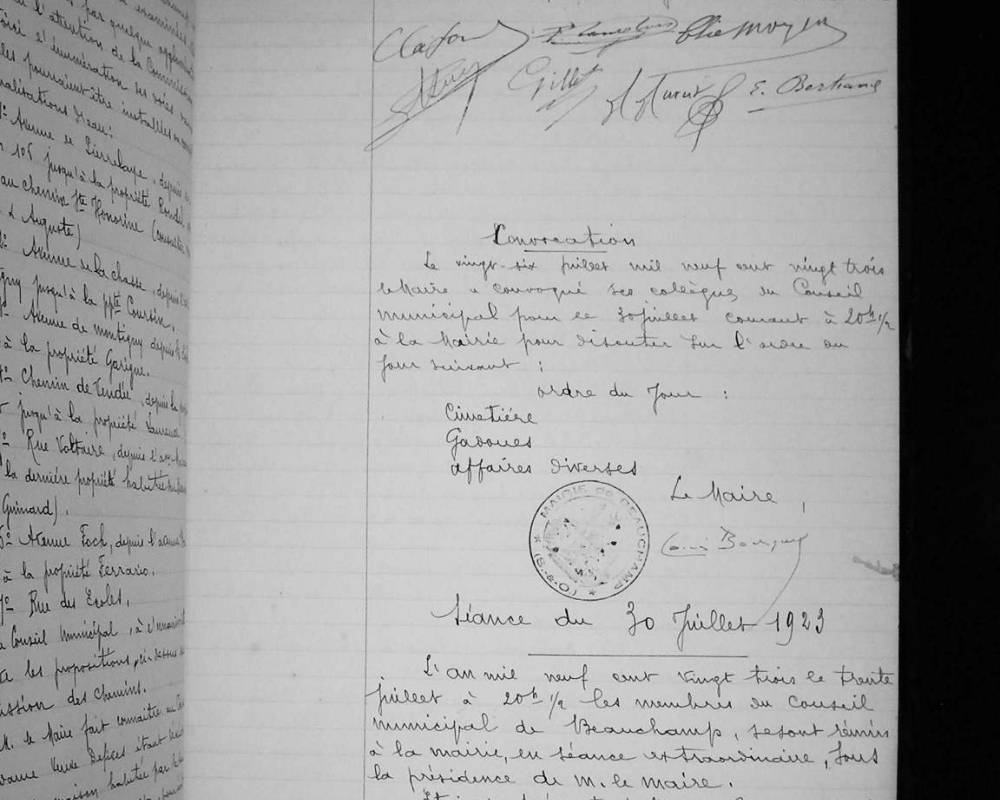 par quelque
l'attention de la Commission
d'énumération les voies
pourraient-être installées
canalisations d'eau:
Avenue de Pierrelaye, depuis
105 jusqu'à la propriété
au chemin Ste Honorine
& Auguste)
Avenue de la chasse, depuis
jusqu'à la ppté Courtin.
Avenue de montigny depuis
à la propriété Garigue.
Chemin de Vendée, depuis la
jusqu'à la propriété Laurence
Rue Voltaire, depuis l'
la dernière propriété habitée
Guimard).
Avenue Foch, depuis l'avenue
à la propriété Ferrario.
7º Rue des Ecoles.
Conseil municipal, à l'unanimité
les propositions ci-dessus
des chemins.
M. le Maire fait connaître au
étant
habitée par
Gillet
E. Bertrand
Convocation
Le vingt-six juillet mil neuf cent vingt trois
le Maire a convoqué ses collègues du Conseil
municipal pour le 30 juillet courant à 20h 1/2
à la Mairie pour discuter sur l'ordre du
jour suivant :
ordre du Jour :
Cimetière
Gadoues
affaires diverses
Le Maire,
MAIRIE DE BEAUCHAMP
* (S.-&-O.) *
Séance du 30 Juillet 1923
L'an mil neuf cent vingt trois le trente
juillet à 20h 1/2 les membres du Conseil
municipal de Beauchamp, se sont réunis
à la mairie, en séance extraordinaire, sous
la présidence de M. le Maire.